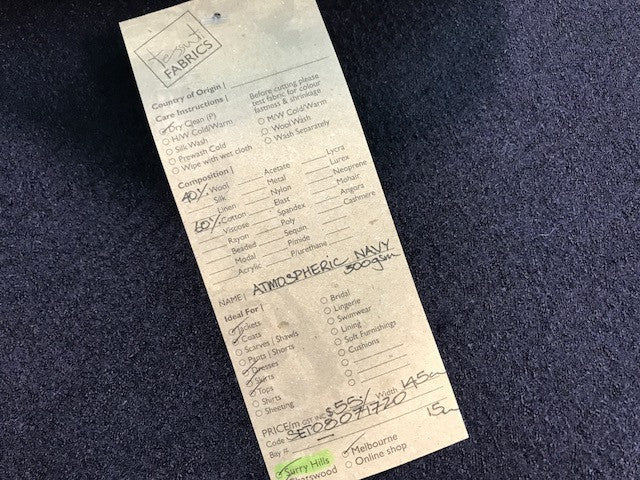 tessuti
FABRICS
Country of Origin |
Care Instructions |
Before cutting please
test fabric for colour
fastness & shrinkage
Dry Clean (P)
H/W Cold/Warm
Silk Wash
Prewash Cold
Wipe with wet cloth
M/W Cold/Warm
Wool Wash
Wash Separately
Composition |
40% Wool
Silk
Linen
60% Cotton
Viscose
Rayon
Beaded
Modal
Acrylic
Acetate
Metal
Nylon
Elast
Spandex
Poly
Sequin
Pimide
P/urethane
Lycra
Lurex
Neoprene
Mohair
Angora
Cashmere
NAME | ATMOSPHERIC NAVY
300gsm
Ideal For |
Jackets
Coats
Scarves | Shawls
Pants | Shorts
Dresses
Skirts
Tops
Shirts
Sheeting
Bridal
Lingerie
Swimwear
Lining
Soft Furnishings
Cushions
PRICE/m GST INC $55/ Width 145cm
Code SET08071720
Bay #
15m
Surry Hills
Melbourne
Online shop